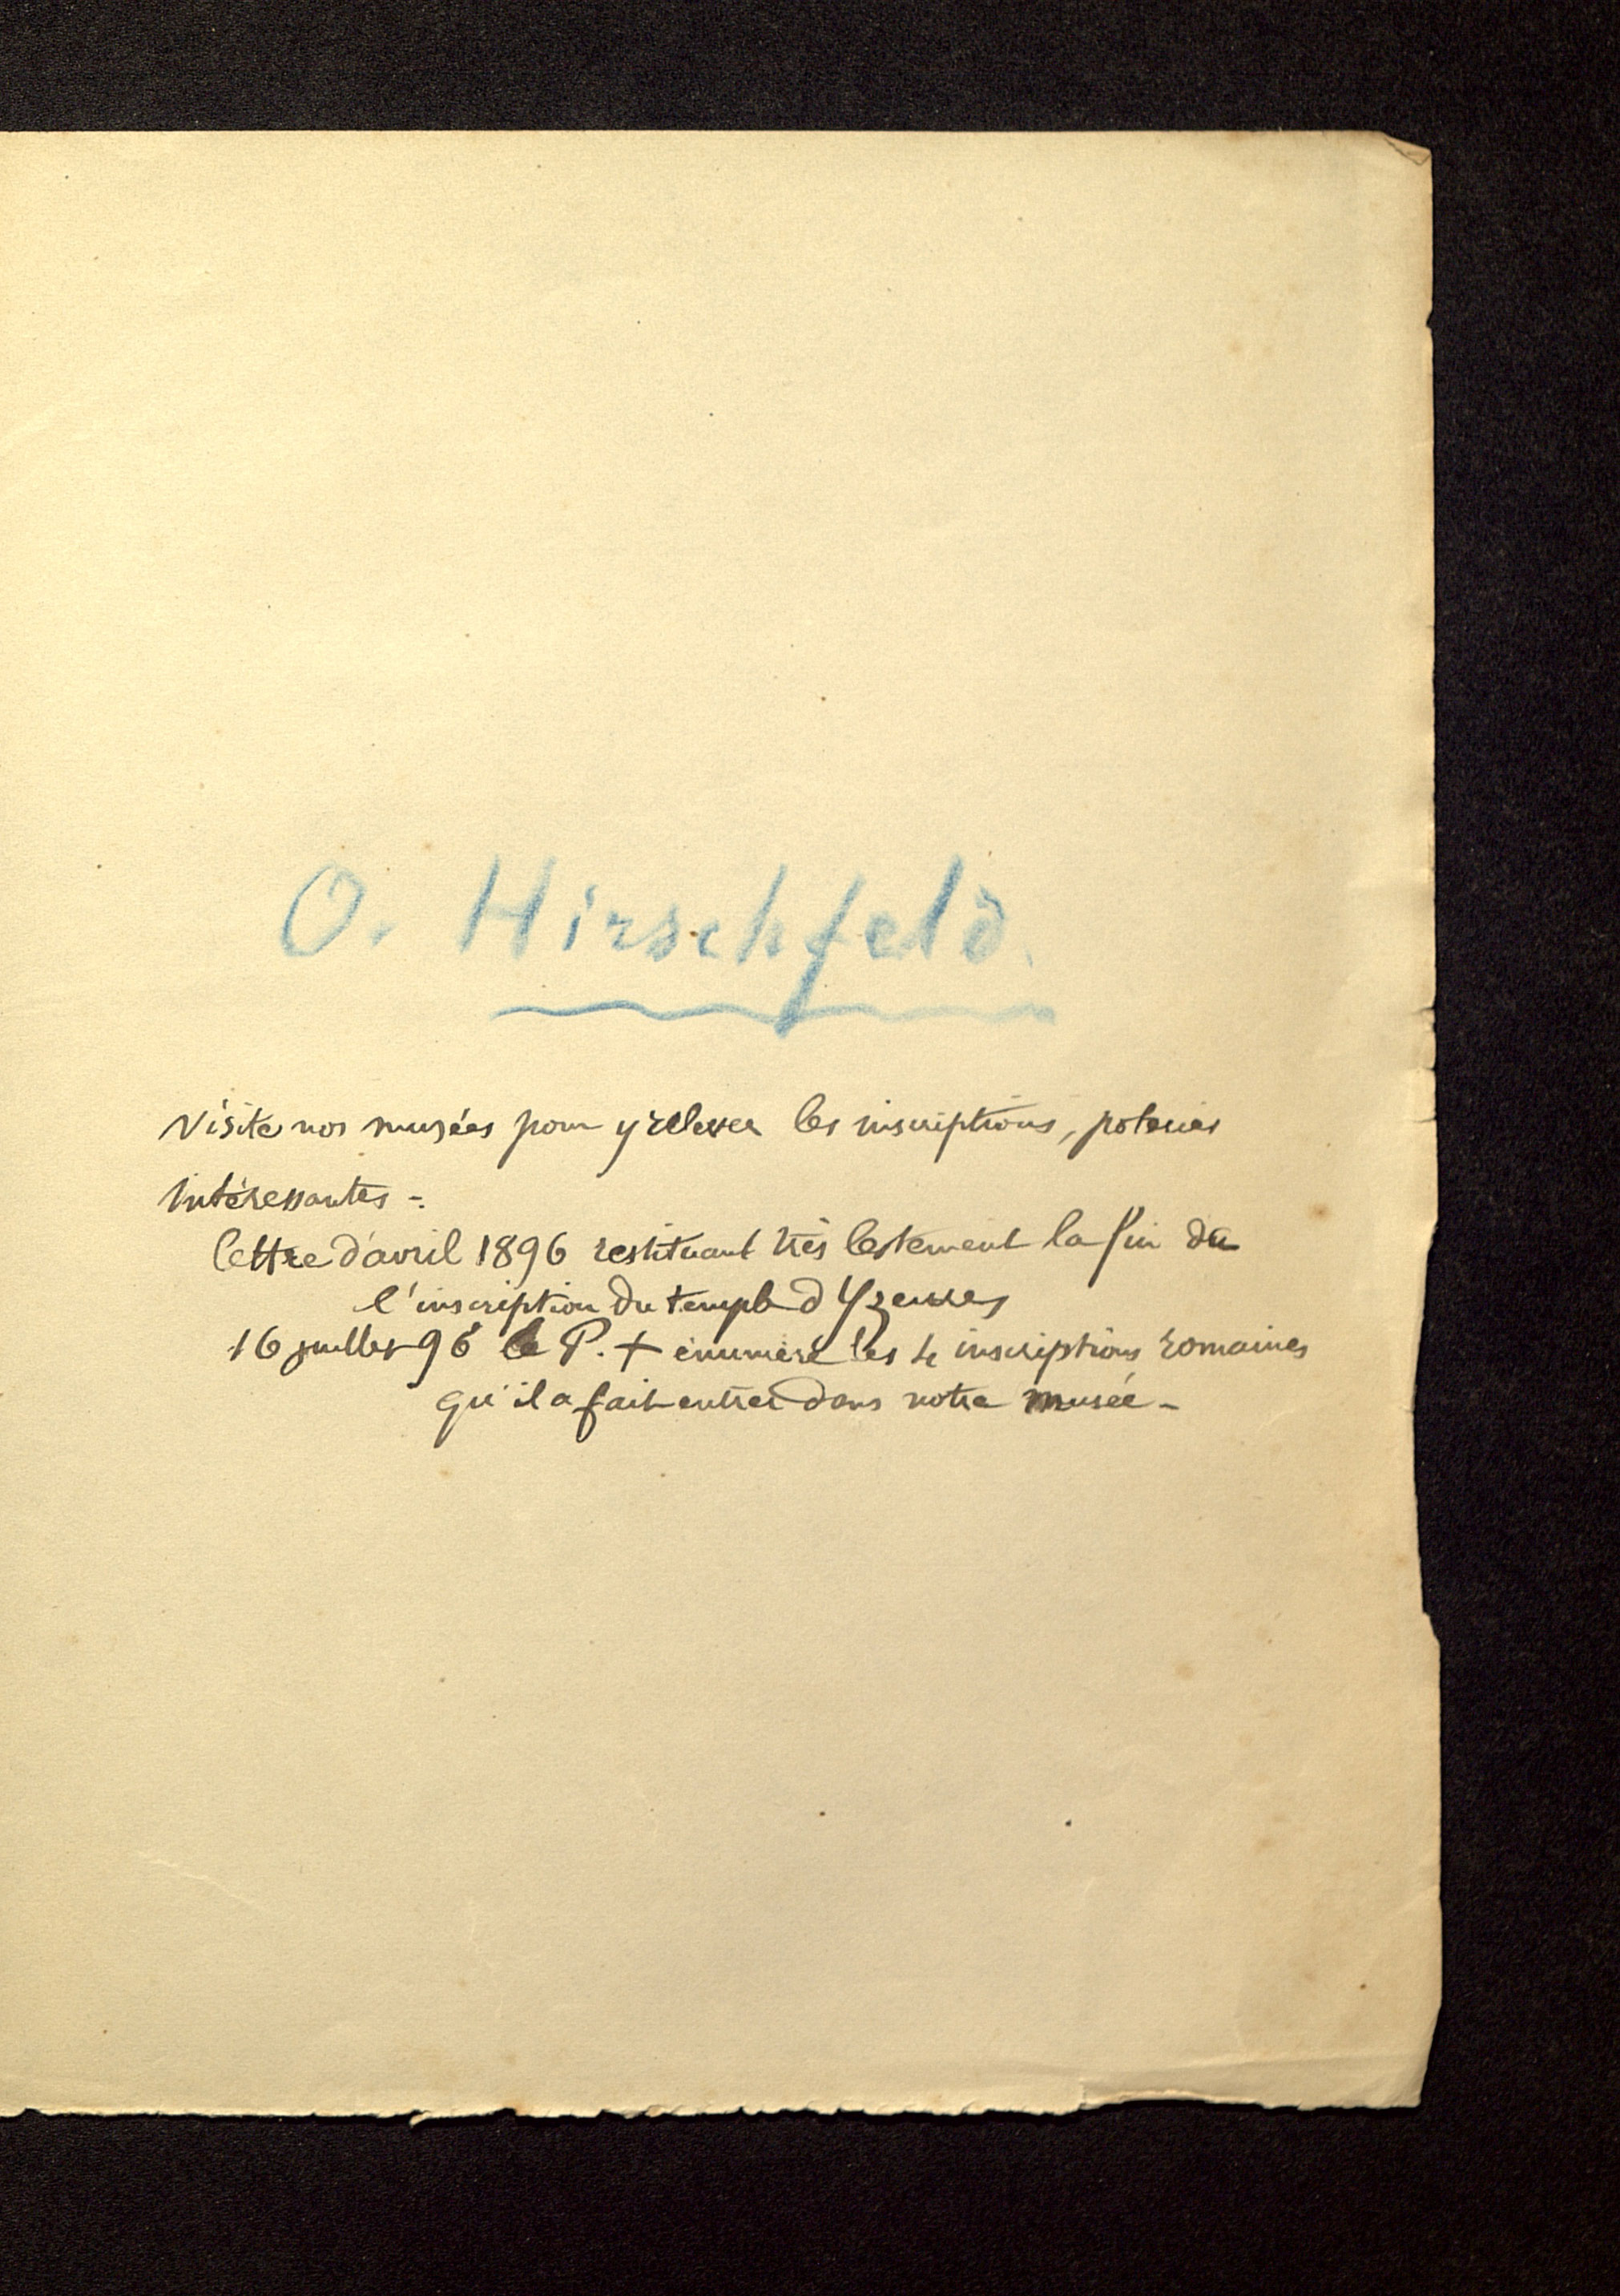 O. Hirschfeld.
Visite nos musées pour y relever les inscriptions, poteries
intéressantes -
lettre d'avril 1896 restituant très lestement la fin de
l'inscription du temple d'Yzeures
16 juillet 96 le P. + énumère les 4 inscriptions romaines
qu'il a fait entrer dans notre musée -